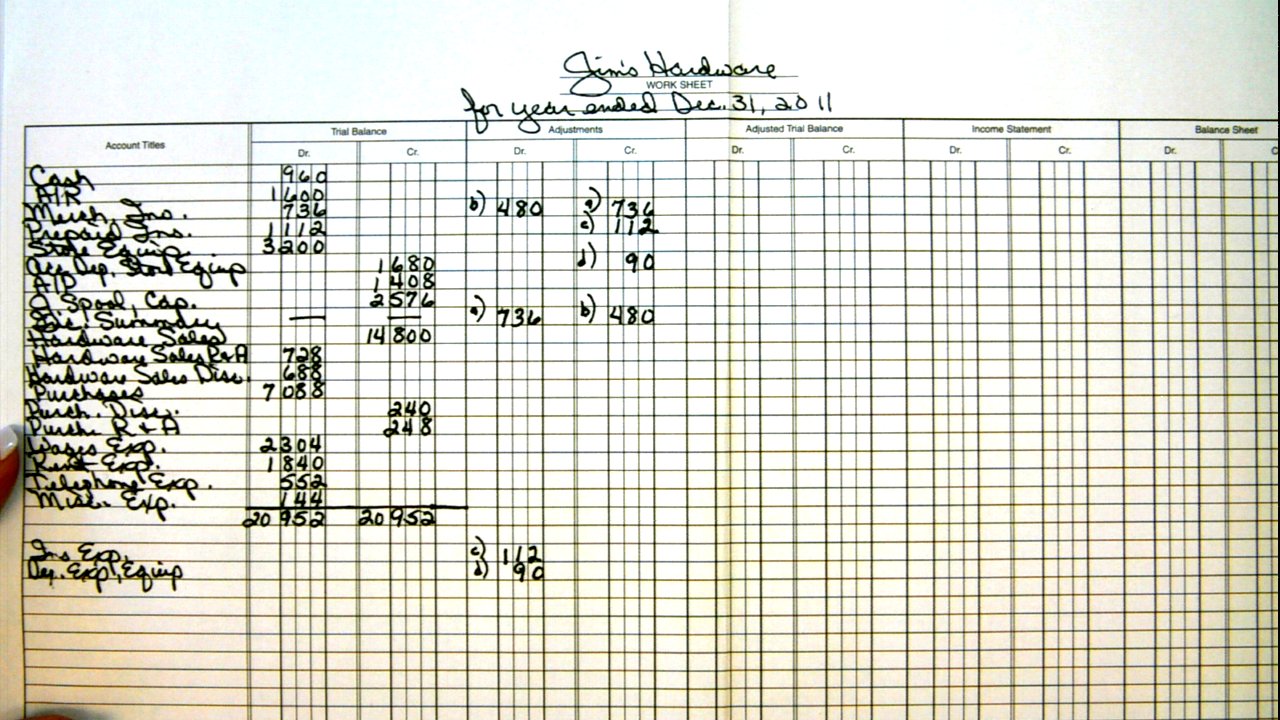 Jim's Hardware
WORK SHEET
for year ended Dec. 31, 2011
Account Titles Trial Balance Adjustments Adjusted Trial Balance Income Statement Balance Sheet
Dr. Cr. Dr. Cr. Dr. Cr. Dr. Cr. Dr. C
Cash 960
A/R 1600
Merch. Ins. 736 b) 480 a) 736
Prepaid Ins. 1112 c) 112
Store Equip. 3200
Acc. Dep. Store Equip 1680 d) 90
A/P 1408
J. Spool, Cap. 2576
Inc. Summary — — a) 736 b) 480
Hardware Sales 14800
Hardware Sales R+A 728
Hardware Sales Disc. 688
Purchases 7088
Purch. Disc. 240
Purch. R + A 248
Wages Exp. 2304
Rent Exp. 1840
Telephone Exp. 552
Misc. Exp. 144
20952 20952
Ins. Exp. c) 112
Dep. Exp, Equip d) 90